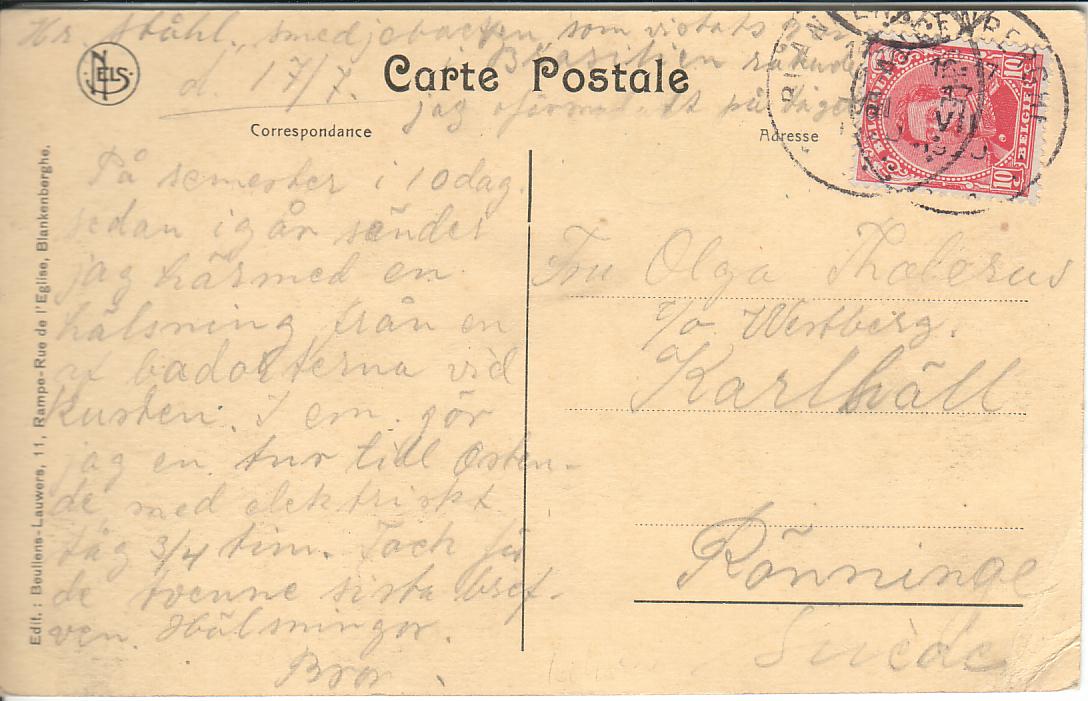 Hr. Ståhl, Smedjebacken, som vistats 3
i Brasilien råkade
d. 17/7.
jag på tåget
NELS
Carte Postale
Correspondance
Adresse
BELGIE
BELGIQUE
10
10
VII
På semester i 10 dag.
sedan igår sänder
jag härmed en
hälsning från en
af badorterna vid
kusten. I em. gör
jag en tur till Osten-
de med elektriskt
tåg 3/4 tim. Tack för
de tvenne sista bref-
ven. Hälsningar.
Bror
Fru Olga Thalerus
c/o Westberg.
Karlhäll
Rönninge
Suède
Edit.: Beullens-Lauwers, 11, Rampe-Rue de l'Eglise, Blankenberghe.